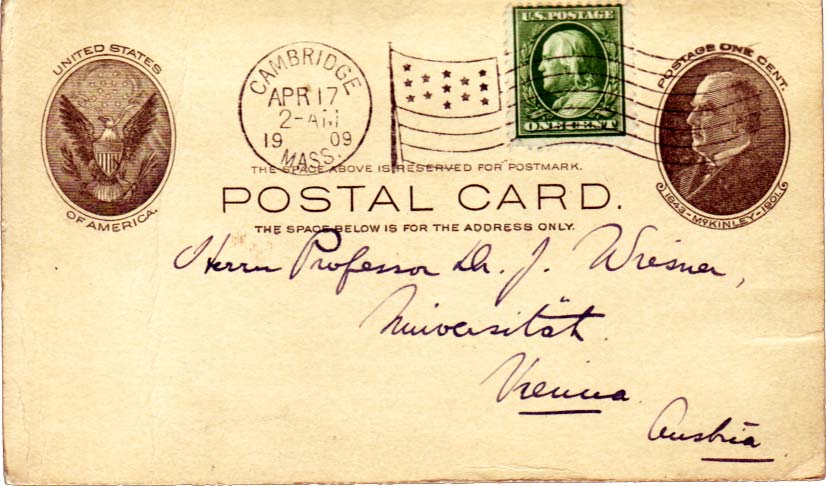 UNITED STATES
OF AMERICA.
CAMBRIDGE
APR 17
2-AM
19 09
MASS.
U.S. POSTAGE
ONE CENT
POSTAGE ONE CENT.
1843-McKINLEY-1901
THE SPACE ABOVE IS RESERVED FOR POSTMARK.
POSTAL CARD.
THE SPACE BELOW IS FOR THE ADDRESS ONLY.
Herrn Professor Dr. J. Wiesner,
Universität.
Vienna
Austria